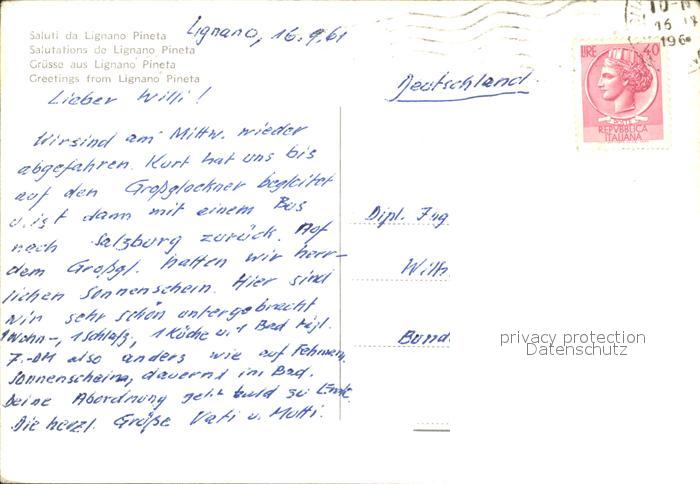 Saluti da Lignano Pineta
Salutations de Lignano Pineta
Grüsse aus Lignano Pineta
Greetings from Lignano Pineta
Lignano, 16.9.61
Lieber Willi!
Wir sind am Mittw. wieder
abgefahren. Kurt hat uns bis
auf den Großglockner begleitet
u. ist dann mit einem Bus
nach Salzburg zurück. Auf
dem Großgl. hatten wir herr-
lichen Sonnenschein. Hier sind
wir sehr schön untergebracht
1 Wohn-, 1 Schlafz, 1 Küche u. 1 Bad tägl.
7.-DM also anders wie auf Fehmarn.
Sonnenschein, dauernd im Bad.
Deine Abordnung geht bald zu Ende.
Die herzl. Grüße Vati u. Mutti.
Deutschland.
Dipl. Ing
Wilh.
Bund
LIRE 40
REPVBBLICA
ITALIANA
16
196
privacy protection
Datenschutz